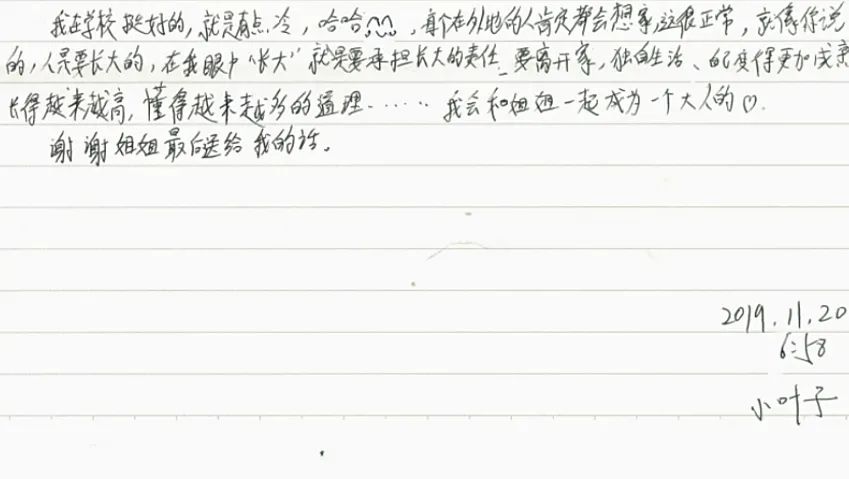 我在学校挺好的,就是有点冷,哈哈,每个在外地的人肯定都会想家,这很正常,就像你说
的,人是要长大的,在我眼中“长大”就是要承担长大的责任、要离开家,独自生活、变得更加成熟
长得越来越高,懂得越来越多的道理……我会和姐姐一起成为一个大人的♡.
谢谢姐姐最后送给我的话。
2019.11.20
6:58
小叶子